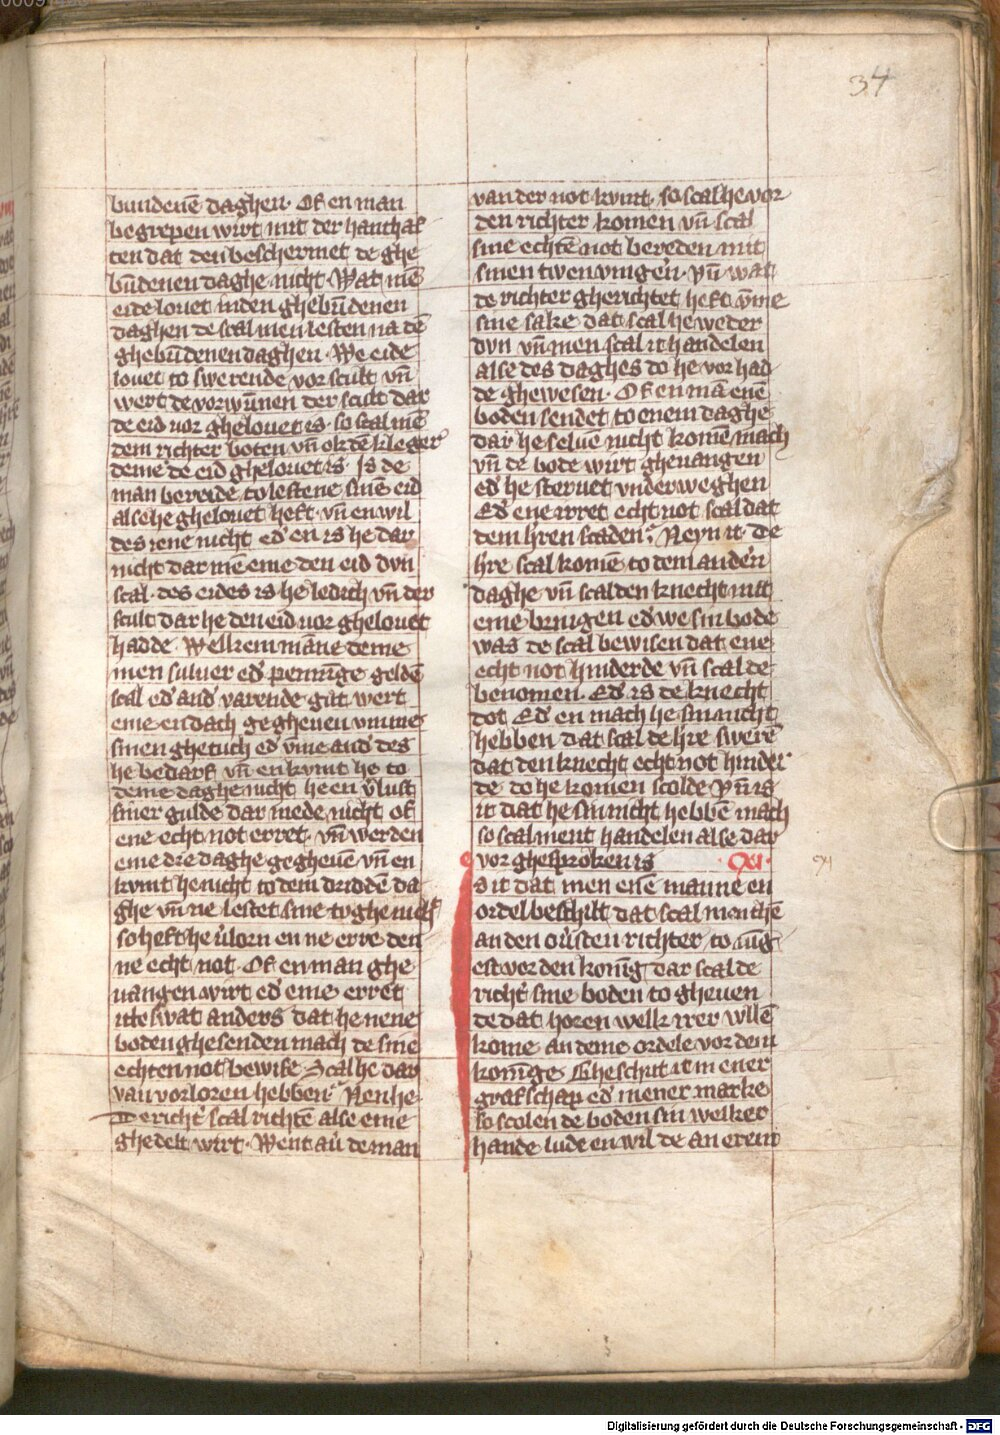 34
bundenē daghen. Of en man
begrepen wirt mit der hanthaf
ten dat den beschermet de ghe
būdenen daghe nicht. Wat mē
eide louet inden ghebūdenen
daghen de scal men lesten na dē
ghebūdenen daghen. We eide
louet to swerende vor scult vn̄
wert de vorwūnen der scult dar
de eid vor ghelouet is. so scal mē
dem richter boten vn̄ ok dē kleger
deme de eid ghelouet is. Is de
man bereide to lestene sinē eid
alse he ghelouet heft. vn̄ en wil
des iene nicht ed' en is he dar
nicht dar mē eme den eid dvn
scal. des eides is he ledich vn̄ der
scult dar he den eid uor ghelouet
hadde. Welkem māne deme
men suluer ed' pennīge geldē
scal ed' and' varende gūt wert
eme en dach gegheuen vmme
sinen ghetuch ed' vm̄e and' des
he bedarf vn̄ en kvmt he to
deme daghe nicht he en v'lust
siner gulde dar mede nicht of
ene echt not erret. vn̄ werden
eme dre daghe gegheuē vn̄ en
kvmt he nicht to dem driddē da
ghe vn̄ ne lestet sine toghe nicht
so heft he v'lorn en ne erre den
ne echt not. Of en man ghe
uangen wirt ed' eme erret
ichteswat anders dat he nene
boden ghesenden mach de sine
echten not bewise Scal he dar
van vorloren hebben? Nen he
De richt' scal richtē alse eme
ghedelt wirt. Went au' de man
van der not kvmt. so scal he vor
den richter komen vn̄ scal
sine echtē not bereden mit
sinen twen vingern. Vn̄ wat
de richter gherichtet heft vm̄e
sine sake dat scal he weder
dvn vn̄ men scal it handelen
alse des daghes do he vor had
de ghewesen. Of en mā enē
boden sendet to enem daghe
dar he selue nicht komē mach
vn̄ de bode wirt gheuangen
ed' he steruet vnderweghen
Ed' ene irret echt not scal dat
dem h'ren scaden? Neyn it. De
h're scal komē to dem and'en
daghe vn̄ scal den knecht mit
eme bringen ed' we sin bode
was de scal bewisen dat ene
echt not hinderde vn̄ scal de
benomen. Ed' is de knecht
dot Ed' en mach he sin nicht
hebben dat scal de h're swerē
dat den knecht echt not hinder
de do he komen scolde Vn̄ is
it dat he sin nicht hebbē mach
so scal ment handelen alse dar
vor ghesproken is .cxi.
cxi
Is it dat men enē manne en
ordel beschilt dat scal mē thē
an den ou'sten richter to
est vor den konīg dar scal de
richt' sine boden to gheuen
de dat horen welk irer vllē
kome an deme ordele vor dem
konīge Gheschut it in ener
grafschap ed' in ener marke
so scolen de boden sin welker
hande lude en wil de an erem
Digitalisierung gefördert durch die Deutsche Forschungsgemeinschaft - DFG